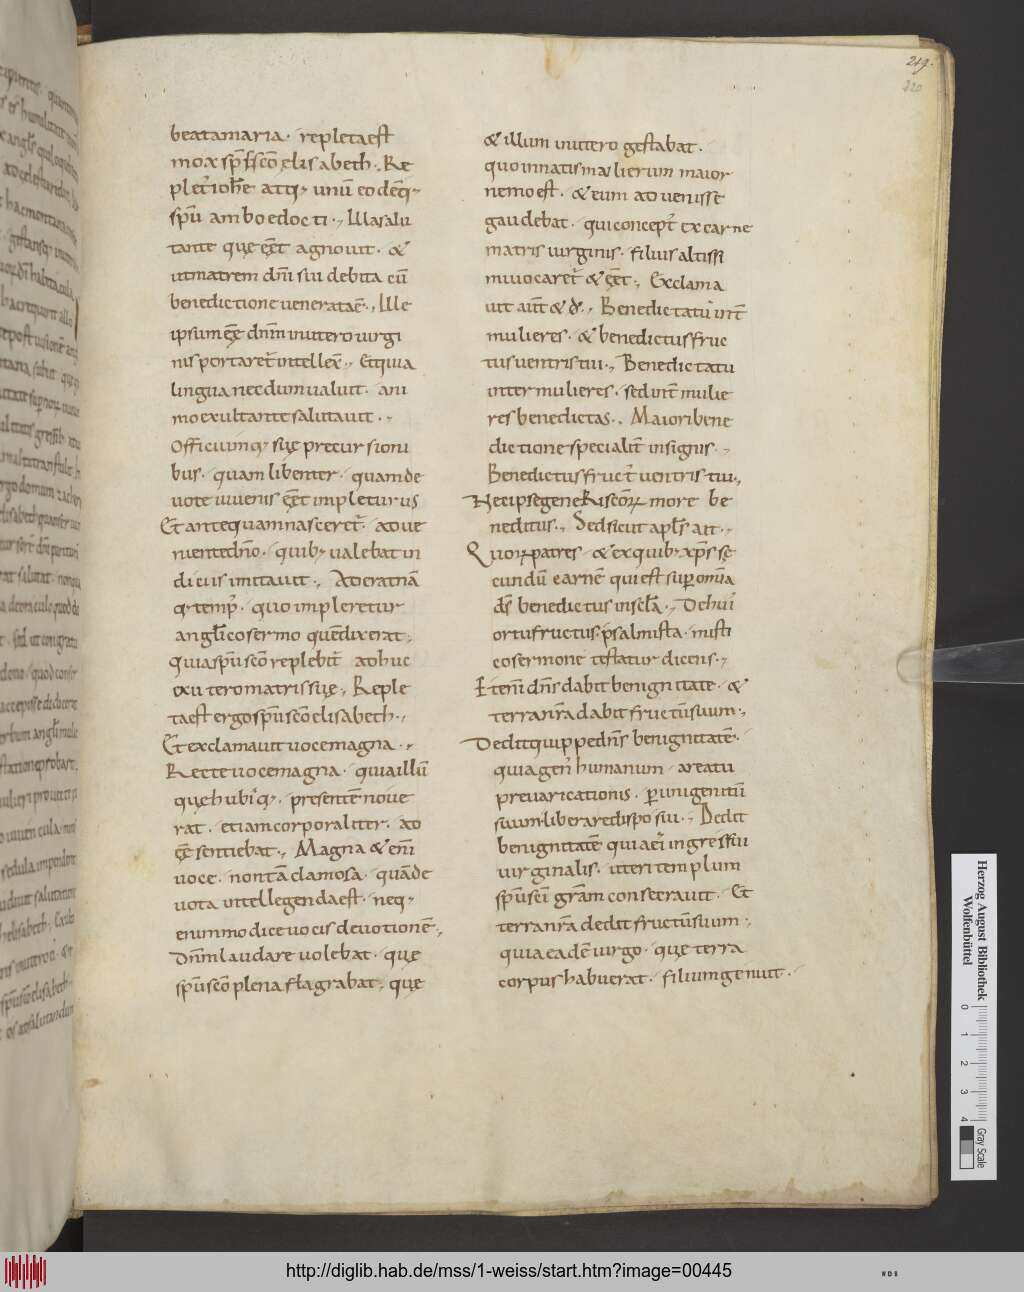 219.
220
beata maria· repleta est
mox sp̄u sc̄o elisabeth. Re
plet' ioh̄e atq; unū eodēq;
sp̄u ambo edocti·, Illa salu
tante quę eēt agnouit· &
ut matrem dn̄i sui debita cū
benedictione ueneratā ē., Ille
ipsum eē dn̄m in utero uirgi
nis portaret' intellex̄., Et quia
lingua necdum ualuit· ani
mo exultante salutauit·,
Officiumq; suę precursioni
bus· quam libenter· quam de
uote iuuenis eēt impleturus
Et antequam nasceret'· adue
niente dn̄o· quib; ualebat in
diciis imitauit·, Aderat nā
q; temp'· quo impleretur
angl̄ico sermo quē dixerat·,
quia sp̄u sc̄o replebit' adhuc
ex utero matris suę·, Reple
ta est ergo sp̄u sc̄o elisabeth·,
Et exclamauit uoce magna·,
Recte uoce magna· quia illū
quę hubiq;· presentē noue
rat· etiam corporaliter· ad
eē sentiebat·, Magna & enī
uoce· non tā clamosa· quā de
uota intellegenda est· neq;
enim modice uocis deuotionē·,
dn̄m laudare uolebat· quę
sp̄u sc̄o plena flagrabat·, quę
& illum in utero gestabat·
quo in natis mulierum maior
nemo est· & eum aduenisse
gaudebat· qui concept' ex carne
matris uirginis· filius altissi
mi uocaret' & eēt·, Exclama
uit aut̄ & d'·, Benedicta tu int̄
mulieres· & benedictus fruc
tus uentris tui·, Benedicta tu
inter mulieres· sed int̄ mulie
res benedictas·, Maiori bene
dictione specialit̄ insignis·,
Benedictus fruct' uentris tui·,
Nec ipse generis sc̄oꝝ more be
neditus·, Sed sicut apl̄s ait·,
Quoꝝ patres· & ex quib; xp̄s se
cundū carnē qui est sup omīa
d̄s benedictus in secl̄a·, De hui'
ortu fructus psalmista· misti
co sermone testatur dicens·,
Eteni dn̄s dabit benignitate· &
terra nr̄a dabit fructū suum·,
Dedit quippe dn̄s benignitatē·
quia gen' humanum a reatu
preuaricationis· p unigenitū
suum liberare disposui·, Dedit
benignitatē qui aei ingressui
uirginalis· uteri templum
sp̄u sc̄i grām consecrauit· Et
terra nr̄a dedit fructū suum·,
quia eadē uirgo· quę terra
corpus habuerat· filium genuit·
Herzog August Bibliothek
Wolfenbüttel
0 1 2 3 4
Gray Scale
http://diglib.hab.de/mss/1-weiss/start.htm?image=00445